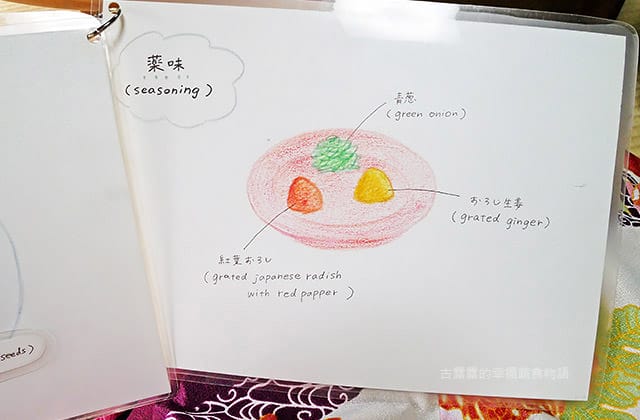 薬味
(seasoning)
青葱
(green onion)
おろし生姜
(grated ginger)
紅葉おろし
(grated japanese radish
with red papper)
seeds)